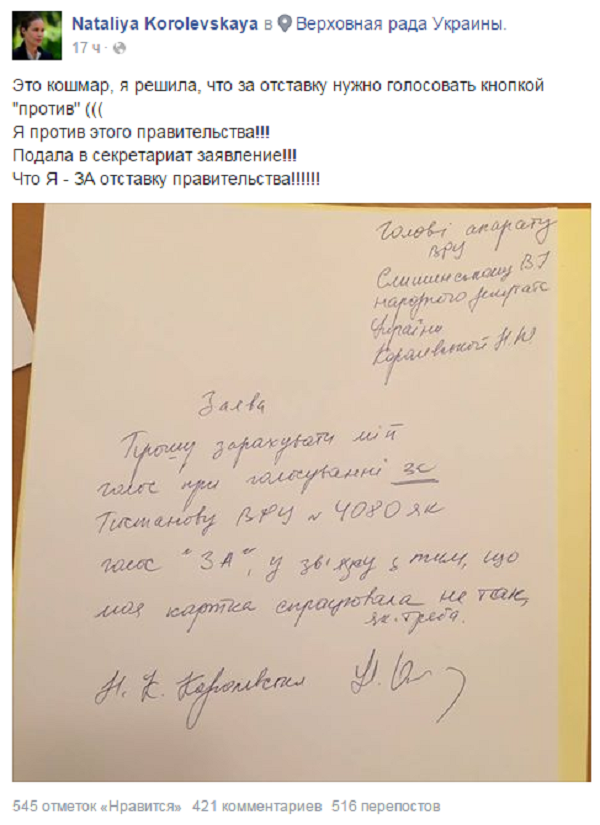 Nataliya Korolevskaya в Верховная рада Украины.
17 ч ·
Это кошмар, я решила, что за отставку нужно голосовать кнопкой
"против" (((
Я против этого правительства!!!
Подала в секретариат заявление!!!
Что Я - ЗА отставку правительства!!!!!!
Голові апарату
ВРУ
Слишинському В І
народного депутата
України
Королевської Н.Ю.
Заява
Прошу зарахувати мій
голос при голосуванні за
Постанову ВРУ № 4080 як
голос "ЗА", у зв'язку з тим, що
моя картка спрацювала не так,
як треба.
Н. К. Королевська
545 отметок «Нравится» 421 комментариев 516 перепостов